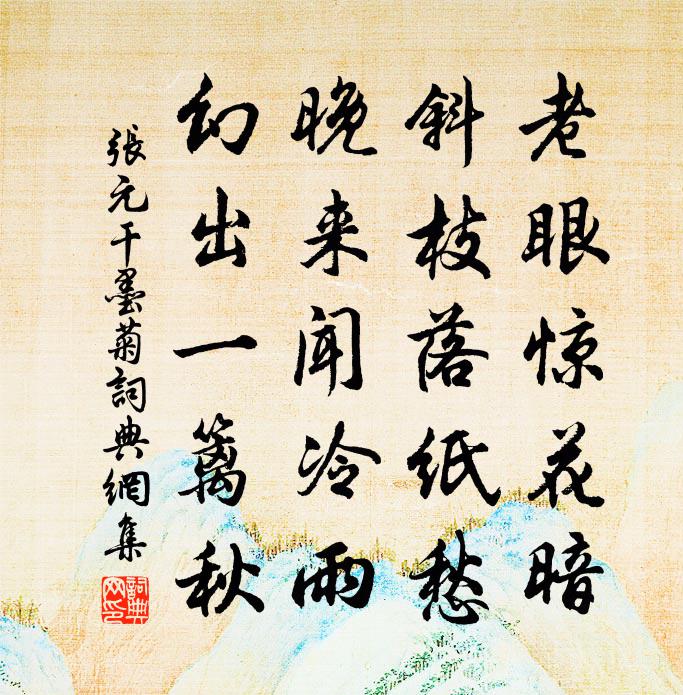 老眼惊花暗
斜枝落纸愁
晚来闻冷雨
幻出一篱秋
張元干墨菊詞典網集
詞典
网印